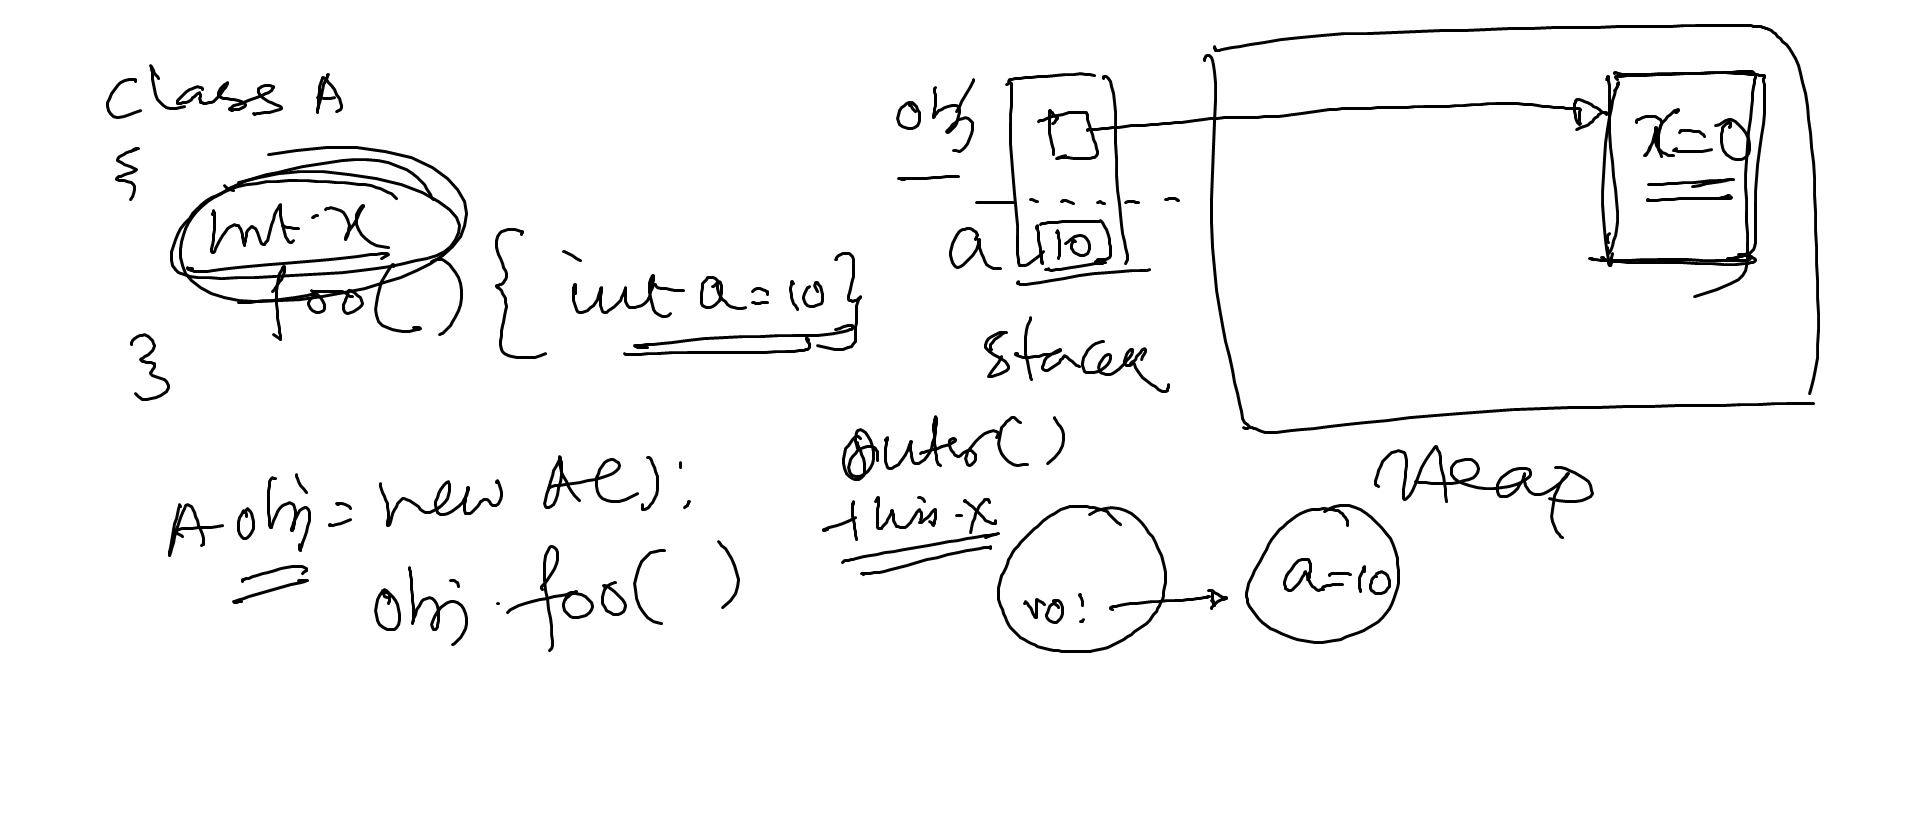 class A
{
int x
foo() { int a=10 }
}
A obj = new A();
obj.foo()
obj
a 10
stack
x=0
Heap
outer()
this.x
ro:
a=10